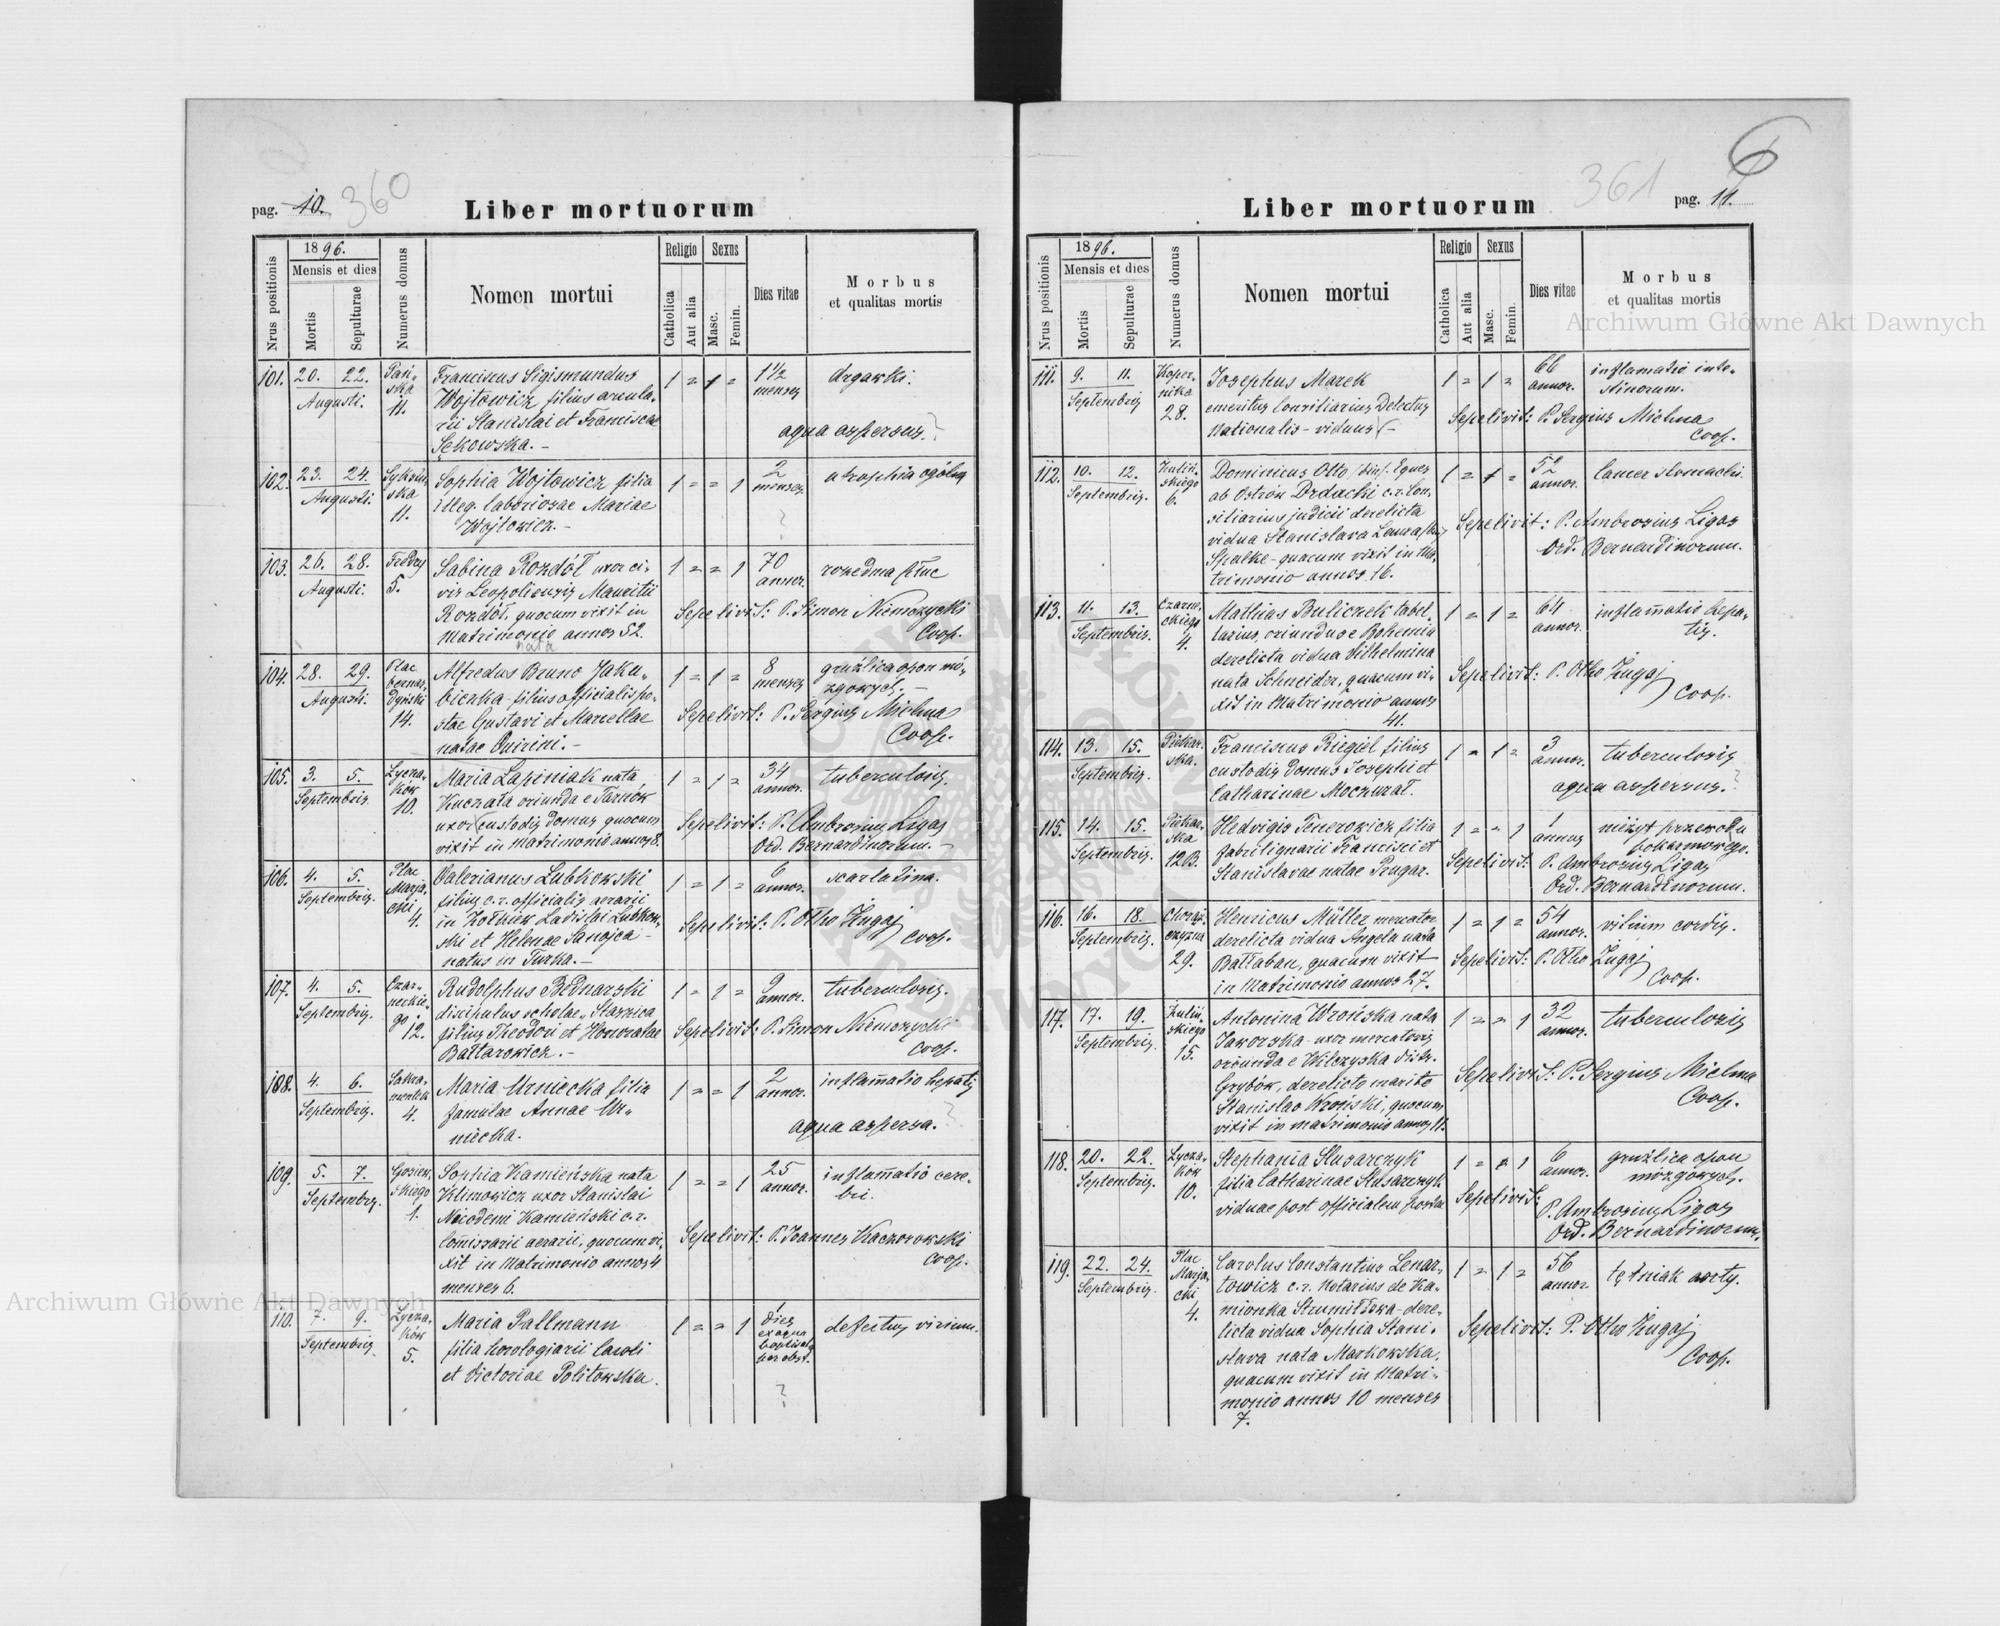 pag. 10. 360
Liber mortuorum
Nrus positionis
1896.
Mensis et dies
Mortis
Sepulturae
Numerus domus
Nomen mortui
Religio
Catholica
Aut alia
Sexus
Masc.
Femin.
Dies vitae
Morbus
et qualitas mortis
101. 20. 22. Augusti.
Pań-
ska
11.
Franciscus Sigismundus
Wojtowicz filius arcula-
rii Stanislai et Franciscae
Sękowska. –
1 = 1 =
1½
menses
drgawki.
aqua aspersus. ?
102. 23. 24. Augusti.
Sykstu-
ska
11.
Sophia Wojtowicz filia
illeg. laboriosae Mariae
Wojtowicz. –
1 = = 1
2
menses
?
atrophia ogólna
103. 26. 28. Augusti.
Fredry
5.
Sabina Rozdół uxor ci-
vis Leopoliensis Mauritii
Rozdół, quocum vixit in
Matrimonio annos 52.
nata
1 = = 1
70
annor.
rozedma płuc
Sepelivit: P. Simon Niemczycki
Coop.
104. 28. 29. Augusti.
Plac
bernar-
dyński
14.
Alfredus Bruno Jaku-
biczka filius officialis po-
stae Gustavi et Marcellae
natae Quirini. –
1 = 1 =
8
menses
gruźlica opon mó-
zgowych. –
Sepelivit: P. Sergius Mielma
Coop.
105. 3. 5. Septembris.
Łycza-
ków
10.
Maria Łapiniak nata
Kuczała oriunda e Tarnów
uxor custodis domus quocum
vixit in Matrimonio annos 8.
1 = 1 =
34
annor.
tuberculosis.
Sepelivit: P. Ambrosius Ligas
Ord. Bernardinorum. –
106. 4. 5. Septembris.
Plac
Marja-
cki
4.
Valerianus Lubkowski
filius c.r. officialis aerarii
in Żołkiew Ladislai Lubkow-
ski et Helenae Sanojca –
natus in Turka. –
1 = 1 =
6
annor.
scarlatina.
Sepelivit: P. Otho Żugaj
Coop.
107. 4. 5. Septembris.
Czar-
neckie-
go
12.
Rudolphus Bednarski
discipulus scholae „Staszica
filius Theodori et Honoratae
Bałtarowicz. –
1 = 1 =
9
annor.
tuberculosis.
Sepelivit: P. Simon Niemczycki
Coop.
108. 4. 6. Septembris.
Sakra-
mentek
4.
Maria Urniecka filia
famulae Annae Ur-
niecka.
1 = = 1
2
annor.
inflamatio hepatis
aqua aspersa. ?
109. 5. 7. Septembris.
1.
Sophia Kamieńska nata
Klimowicz uxor Stanislai
Nicodemi Kamieński c.r.
Comissarii aerarii, quocum vi-
xit in Matrimonio annos 4
menses 6.
1 = = 1
25
annor.
inflamatio cere-
bri.
Sepelivit: P. Joannes Kaczorowski
Coop.
110. 7. 9. Septembris.
Łycza-
ków
5.
Maria Pallmann
filia horologiarii Caroli
et Victoriae Politowska.
1 = = 1
1
dies
ex aqua
baptisata
per obst.
?
defectus virium.
6
361
pag. 11.
Liber mortuorum
Nrus positionis
1896.
Mensis et dies
Mortis
Sepulturae
Numerus domus
Nomen mortui
Religio
Catholica
Aut alia
Sexus
Masc.
Femin.
Dies vitae
Morbus
et qualitas mortis
111. 9. 11. Septembris
Koper-
nika
28.
Josephus Marek
emeritus Consiliarius Delectus
Nationalis – viduus –
1 = 1 =
66
annor.
inflamatio inte-
stinorum.
Sepelivit: P. Sergius Mielma
Coop.
112. 10. 12. Septembris.
Zuliń-
skiego
6.
Dominicus Otto /bin/. Eques
ab Ostrów Drdacki c.r. Con-
siliarius judicii derelicta
vidua Stanislava Leura
Spalke – quacum vixit in Ma-
trimonio annos 16.
1 = 1 =
52
annor.
Cancer stomachi.
Sepelivit: P. Ambrosius Ligas
Ord. Bernardinorum.
113. 11. 13. Septembris.
4.
Mathias Buliczek tabel-
larius, oriundus e Bohemia
derelicta vidua Vilhelmina
nata Schneider, quacum vi-
xit in Matrimonio annos
41.
1 = 1 =
64
annor.
inflamatio hepa-
tis.
Sepelivit: P. Otho Żugaj
Coop.
114. 13. 15. Septembris.
Piekar-
ska.
Franciscus Priegiel filius
custodis domus Josephi et
Catharinae Moczurat.
1 = 1 =
3
annor.
tuberculosis
aqua aspersus. ?
115. 14. 15. Septembris.
Piekar-
ska
12B.
Hedvigis Tenerowicz filia
fabri lignarii Francisci et
Stanislavae natae Prugar.
1 = = 1
1
annus
nieżyt przewodu
pokarmowego.
Sepelivit: P. Ambrosius Ligas
Ord. Bernardinorum.
116. 16. 18. Septembris.
Chorąż-
czyzna
29.
Henricus Müller mercator
derelicta vidua Angela nata
Bałłaban, quacum vixit
in Matrimonio annos 27.
1 = 1 =
54
annor.
vitium cordis.
Sepelivit: P. Otho Żugaj
Coop.
117. 17. 19. Septembris.
Zuliń-
skiego
15.
Antonina Wrońska nata
Jaworska – uxor mercatoris
oriunda e Wilczyska distr.
Grybów, derelicto marito
Stanislao Wroński, quocum
vixit in matrimonio annos 11.
1 = = 1
32
annor.
tuberculosis
Sepelivit: P. Sergius Mielma
Coop.
118. 20. 22. Septembris.
Łycza-
ków
10.
Stephania Slusarczyk
filia Catharinae Slusarczyk
viduae post officialem postae
1 = = 1
6
annor.
gruźlica opon
mózgowych.
Sepelivit:
P. Ambrosius Ligas
Ord. Bernardinorum.
119. 22. 24. Septembris
Plac
Marja-
cki
4.
Carolus Constantius Lenar-
towicz c.r. Notarius de Ka-
mionka Strumiłowa – dere-
licta vidua Sophia Stani-
slava nata Markowska,
quacum vixit in Matri-
monio annos 10 menses
7.
1 = 1 =
56
annor.
tętniak aorty.
Sepelivit: P. Otho Żugaj
Coop.
Archiwum Główne Akt Dawnych
Archiwum Główne Akt Dawnych